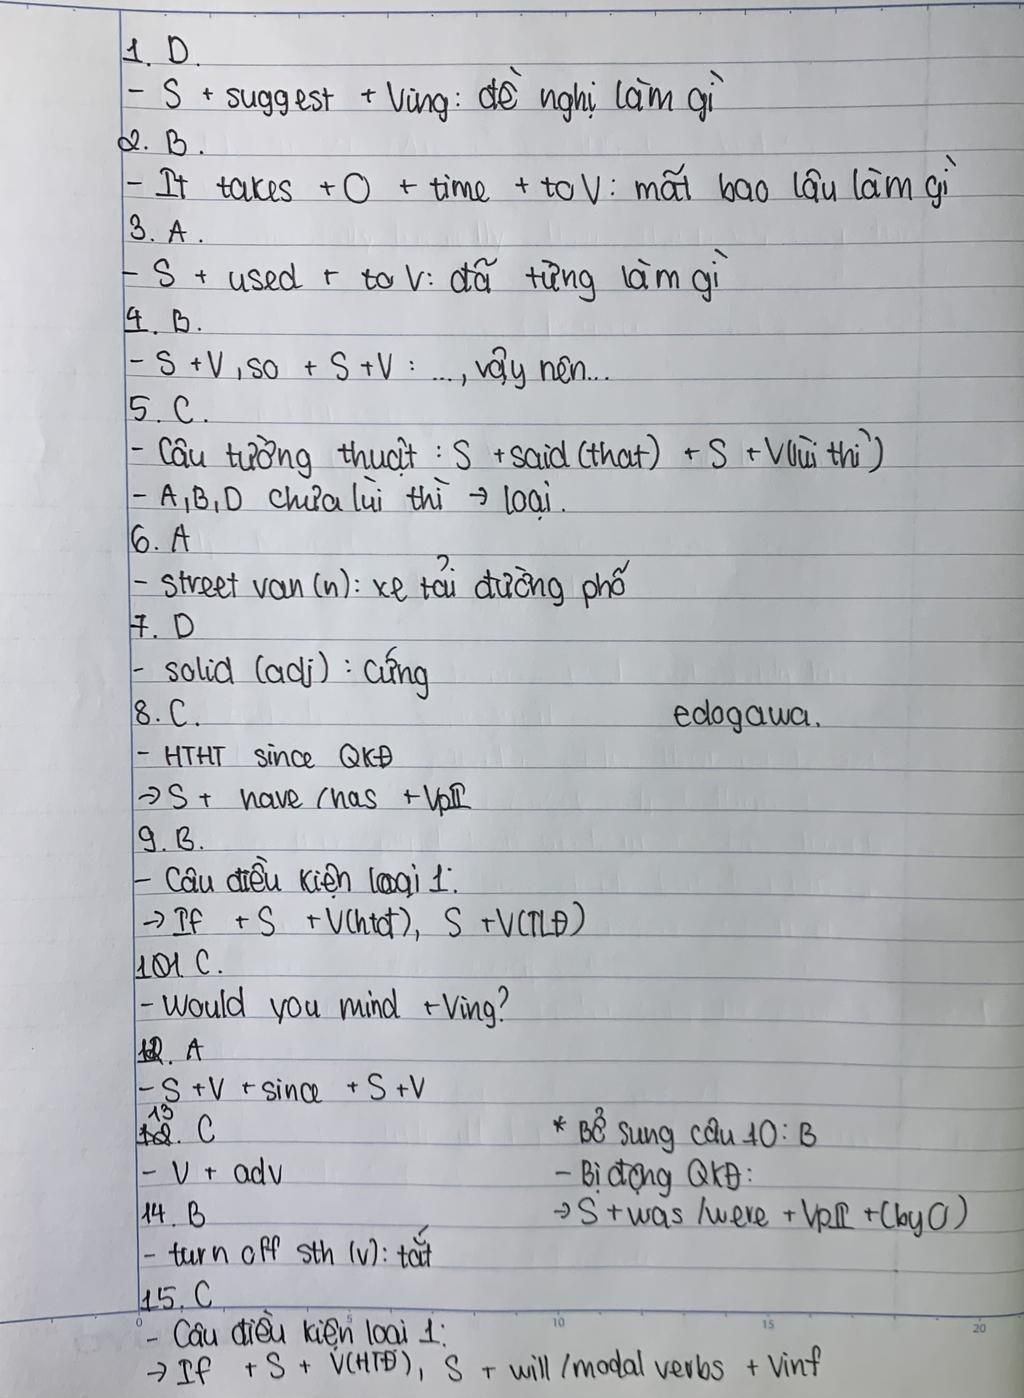 1. D.
- S + suggest + Ving: đề nghị làm gì
2. B.
- It takes + O + time + to V: mất bao lâu làm gì
3. A.
- S + used + to V: đã từng làm gì
4. B.
- S + V, so + S + V: ..., vậy nên...
5. C.
- Câu tường thuật: S + said (that) + S + V(lùi thì)
- A, B, D chưa lùi thì → loại.
6. A
- street van (n): xe tải đường phố
7. D
- solid (adj): cứng
8. C.
edogawa.
- HTHT since QKĐ
→ S + have/has + VpII
9. B.
- Câu điều kiện loại 1:
→ If + S + V(htđ), S + V(TLĐ)
11. C.
- Would you mind + Ving?
12. A
- S + V + since + S + V
13. C
- V + adv
14. B
- turn off sth (v): tắt
* Bổ sung câu 10: B
- Bị động QKĐ:
→ S + was/were + VpII + (by O)
15. C
- Câu điều kiện loại 1:
→ If + S + V(HTĐ), S + will/modal verbs + Vinf
0 10 15 20